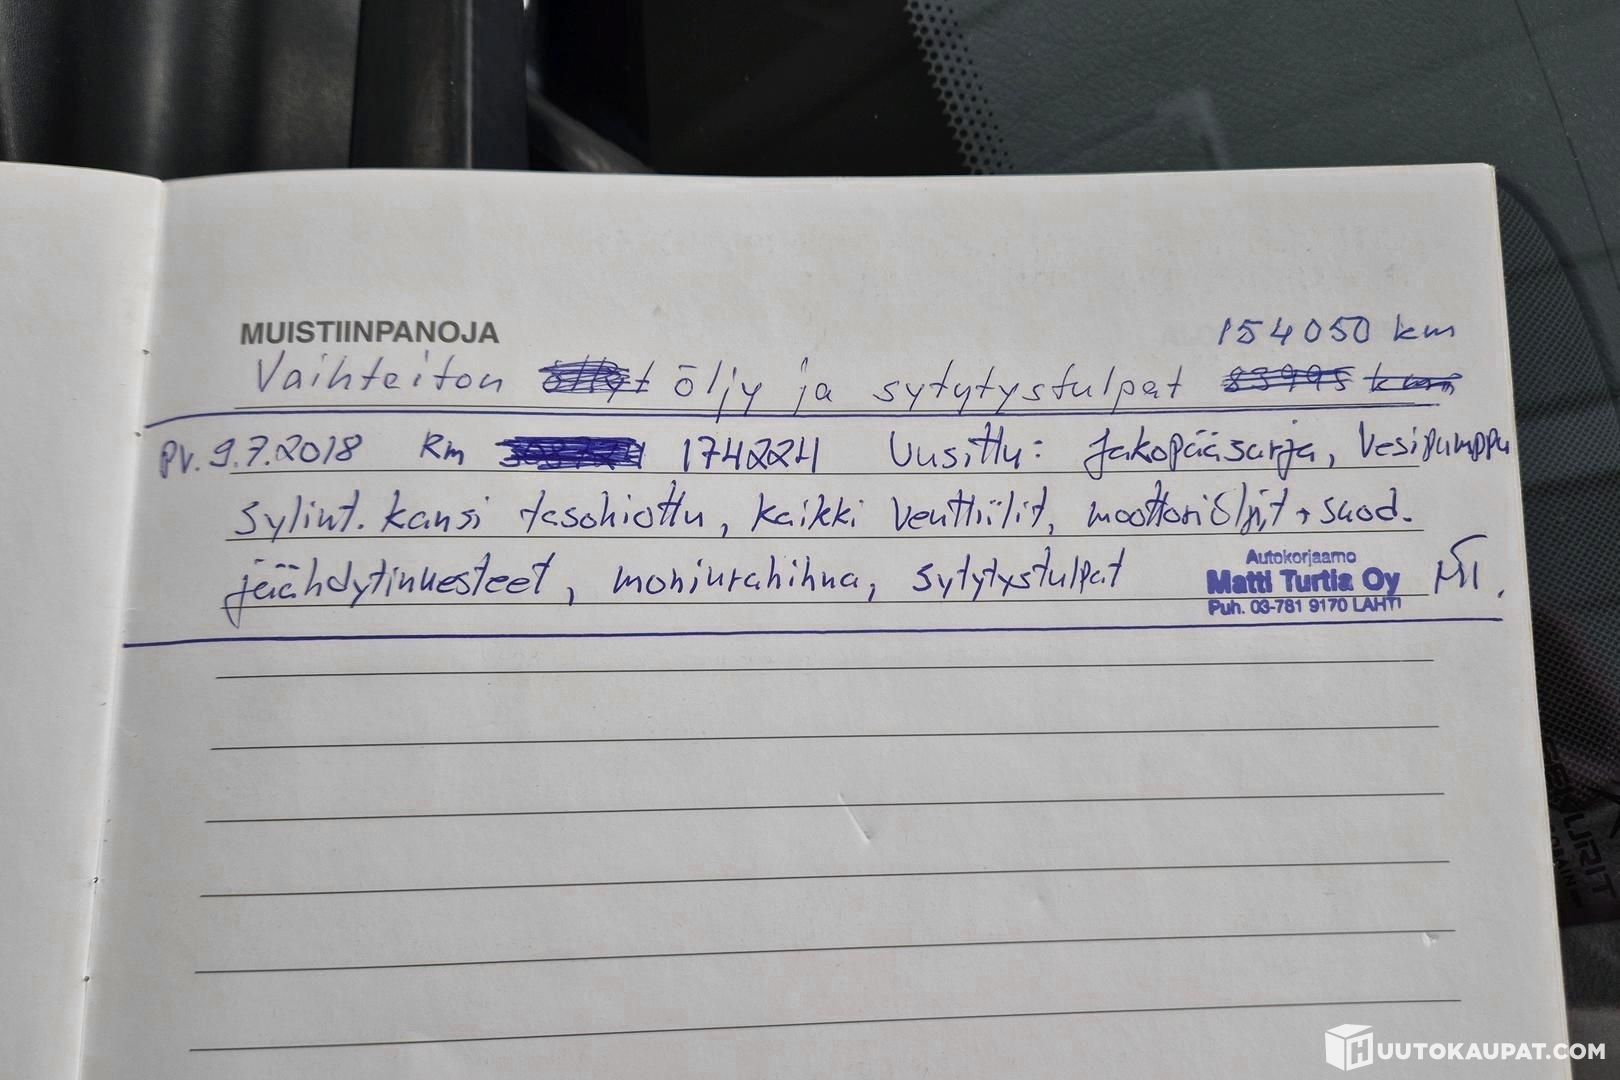 MUISTIINPANOJA
154050 km
Vaihteiton öljy ja sytytystulpat 83995 km
Pv. 9.7.2018 Km 174224 Uusittu: Jakopääsarja, Vesipumppu
Sylint. kansi tasohiottu, kaikki venttiilit, moottoriöljyt + suod.
jäähdytinnesteet, moniurahihna, sytytystulpat
Autokorjaamo
Matti Turtia Oy
Puh. 03-781 9170 LAHTI
HUUTOKAUPAT.COM